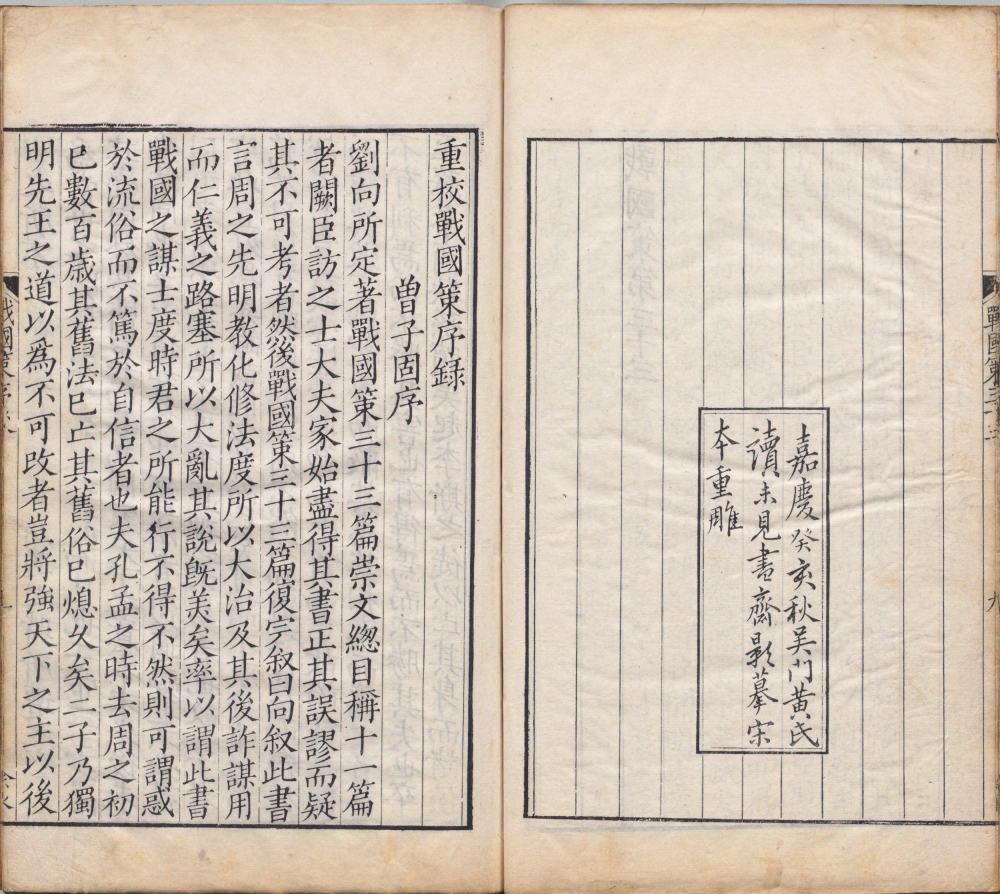 戰國策三十三
九
嘉慶癸亥秋吴門黄氏
讀未見書齋影摹宋
本重雕
重校戰國策序録
曾子固序
劉向所定著戰國策三十三篇崇文緫目稱十一篇
者闕臣訪之士大夫家始盡得其書正其誤謬而疑
其不可考者然後戰國策三十三篇復完叙曰向叙此書
言周之先明教化修法度所以大治及其後詐謀用
而仁義之路塞所以大亂其說旣美矣率以謂此書
戰國之謀士度時君之所能行不得不然則可謂惑
於流俗而不篤於自信者也夫孔孟之時去周之初
已數百歲其舊法已亡其舊俗已熄久矣二子乃獨
明先王之道以爲不可改者豈將強天下之主以後
戰國策序录